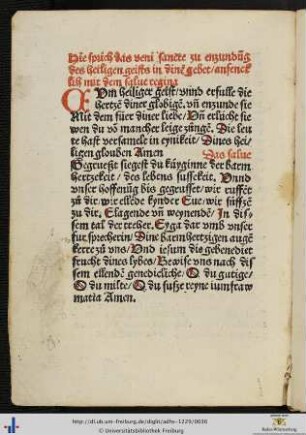 Hie sprich das veni sancte zu enzundūg
des heiligen geists in dinē gebet/ anfenck
lich mit dem salue regina
Cum heiliger geist/ vnnd erfulle die
hertzē diner globigē. vn̄ enzunde sie
Mit dem fúer diner liebe/ Vn̄ erlúchte sie
wen du vō mancher leige zúngē. Die leut
te hast versamelt in eynikeit/ Dines hei/
ligen glouben Amen Das salue
Gegrueßt siegest du kúnginne der barm
hertzekeit/ des lebens sussekeit. Vnnd
vnser hoffenūg bis gegrusset/ wir ruffēt
zu dir. wir ellēde kynder Eue/ wir súffzē
zu dir. Clagende vn̄ weynendē/ In dis/
sem tal der treher. Eya dar vmb vnser
fursprecherin/ Dine barmhertzigen augē
kerre zů vns/ Vnd iesum die gebenediet
frucht dines lybes/ Bewise vns nach dis
sem ellendē genedicliche/ O du gutige/
O du milte/ O du susze reyne iunfraw
maria Amen.
http://dl.ub.uni-freiburg.de/diglit/adhs-1229/0030
© Universitätsbibliothek Freiburg
Baden-Württemberg